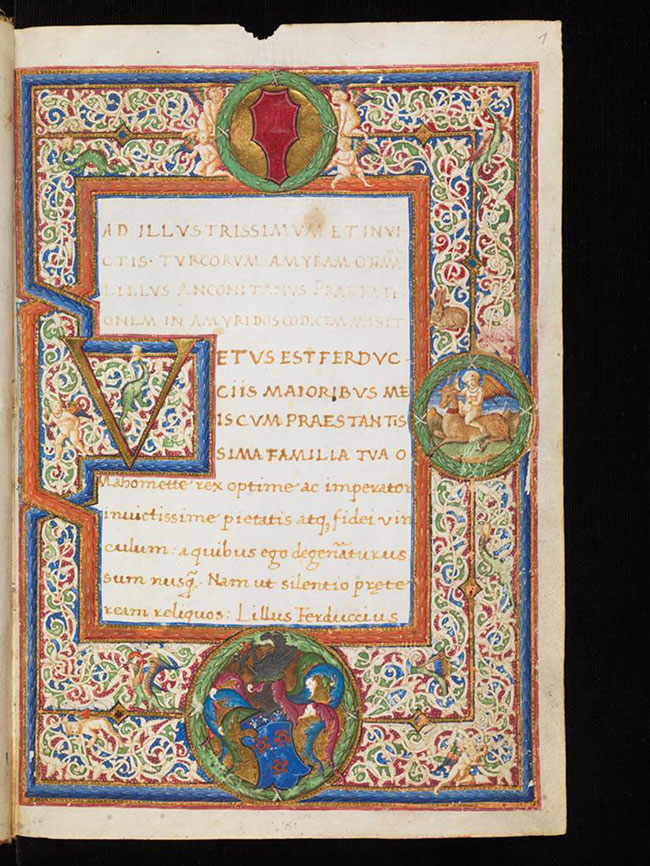 1
AD ILLVSTRISSIMVM ET INVI
CTIS· TVRCORVM AMYRAM
LILLVS ANCONITANVS PRAEFATI
ONEM IN AMYRIDOS CODICEM MISIT
VETVS EST FERDVC-
CIIS MAIORIBVS ME
IS CVM PRAESTANTIS
SIMA FAMILIA TVA O
Mahomette rex optime ac imperator
invictissime pietatis atq; fidei vin
culum: a quibus ego degeñaturus
sum nusq̃. Nam ut silentio pręte
ream reliquos: Lillus Ferduccius